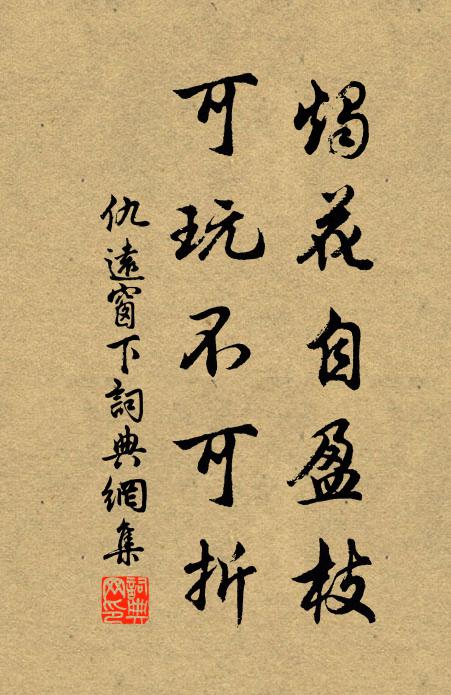 燭花自盈枝
可玩不可折
仇遠窗下詞典網集
詞典
网印